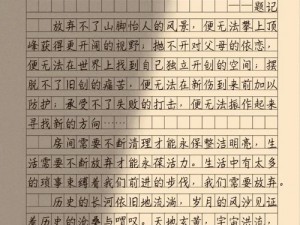 ——题记
放弃不了山脚怡人的风景，便无法攀上顶
峰获得更开阔的视野；抛不开对父母的依恋，
便无法在世界上找到自己独立开创的空间；摆
脱不了旧创的痛苦，便无法在新伤到来前加以
防护；承受不了失败的打击，便无法振作起来
寻找新的方向……
房间需要不断清理才能永保整洁明亮，生
活需要不断放弃才能永葆活力。生活中有太多
的琐事束缚着我们前进的步伐，我们需要放弃。
历史的长河依旧地流淌，岁月的风沙见证
着历史的沧桑与喟叹。天地玄黄，宇宙洪流，